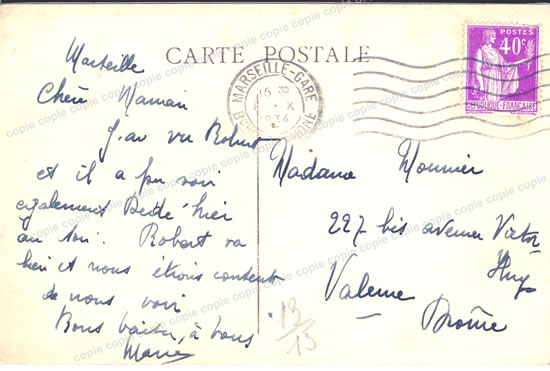 CARTE POSTALE
POSTES
40c
REPUBLIQUE-FRANÇAISE
MARSEILLE-GARE
15
X
1934
Marseille
Chère Maman
J'ai vu Robert
et il a pu voir
également Dédé hier
au soir. Robert va
bien et nous étions content
de nous voir
Bons baisers à tous
Marie
13
13
Madame Monnier
227 bis avenue Victor
Hugo
Valence
Drôme
copie copie copie copie